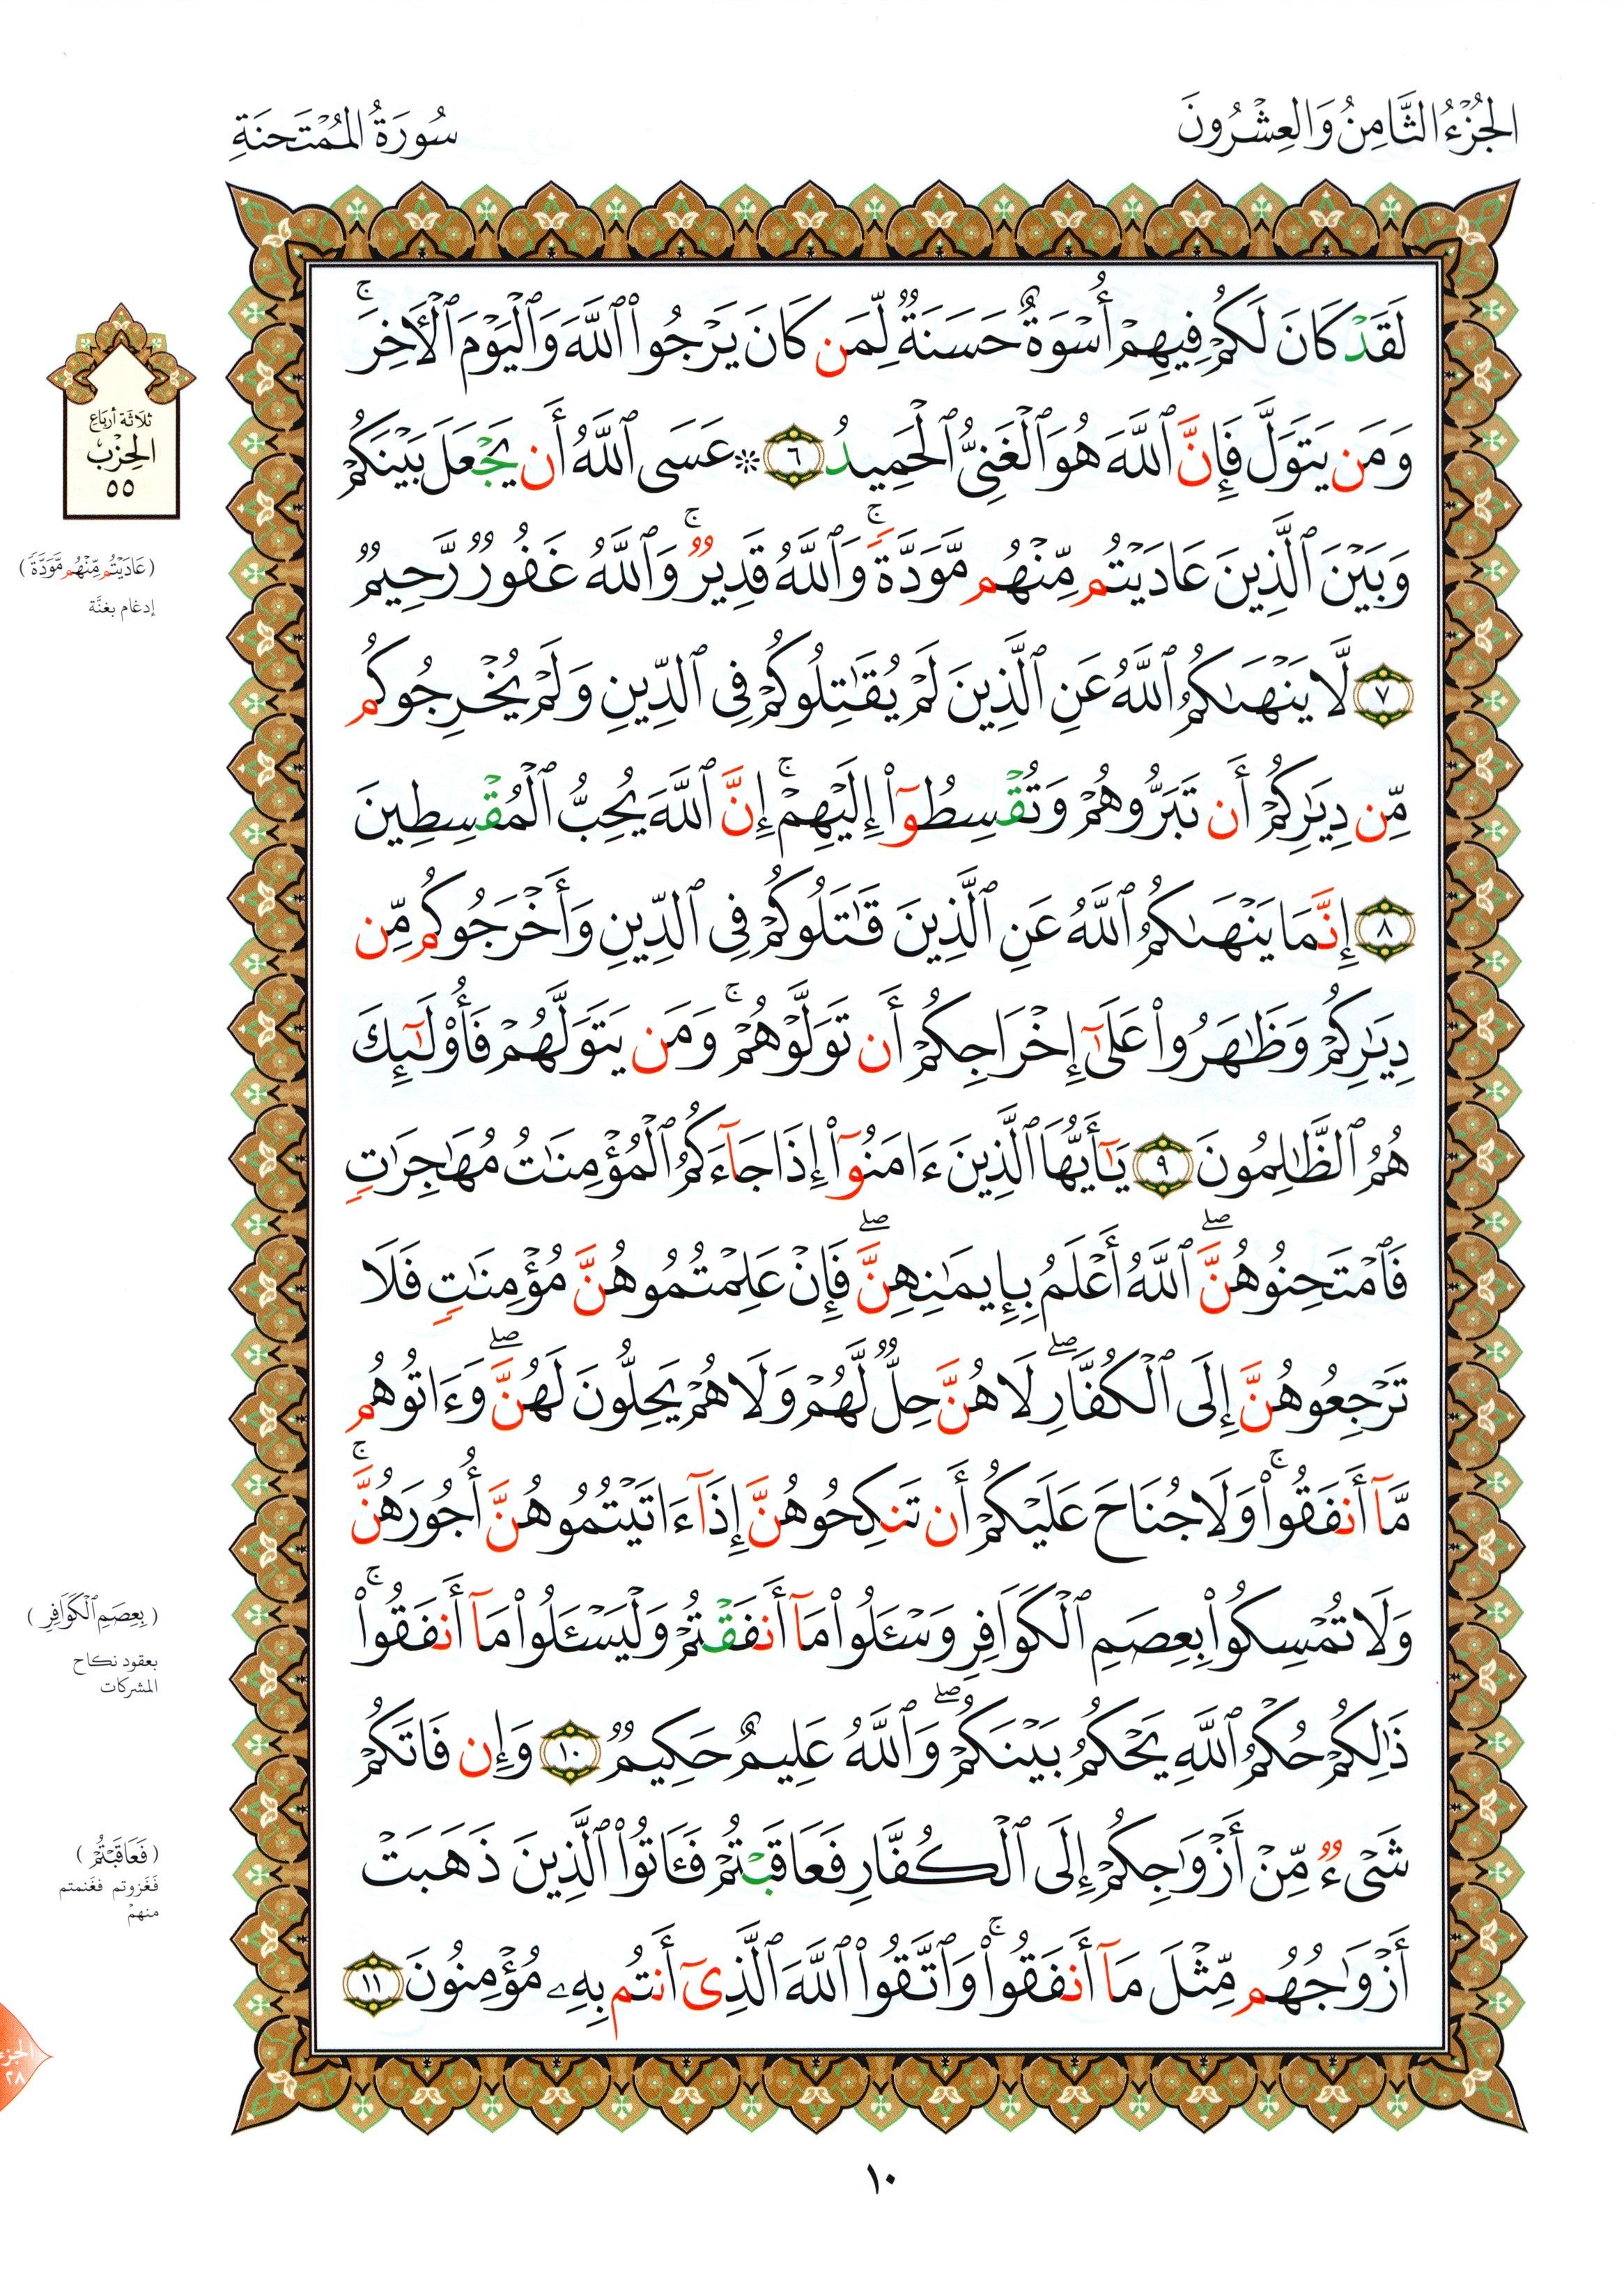 الجُزْءُ الثَّامِنُ وَالعِشْرُونَ
سُورَةُ المُمْتَحنَةِ
لَقَدْ كَانَ لَكُمْ فِيهِمْ أُسْوَةٌ حَسَنَةٌ لِّمَن كَانَ يَرْجُوا۟ ٱللَّهَ وَٱلْيَوْمَ ٱلْأٓخِرَ ۚ
وَمَن يَتَوَلَّ فَإِنَّ ٱللَّهَ هُوَ ٱلْغَنِىُّ ٱلْحَمِيدُ ٦ ۞ عَسَى ٱللَّهُ أَن يَجْعَلَ بَيْنَكُمْ
وَبَيْنَ ٱلَّذِينَ عَادَيْتُم مِّنْهُم مَّوَدَّةً ۚ وَٱللَّهُ قَدِيرٌ ۚ وَٱللَّهُ غَفُورٌ رَّحِيمٌ
٧ لَّا يَنْهَىٰكُمُ ٱللَّهُ عَنِ ٱلَّذِينَ لَمْ يُقَـٰتِلُوكُمْ فِى ٱلدِّينِ وَلَمْ يُخْرِجُوكُم
مِّن دِيَـٰرِكُمْ أَن تَبَرُّوهُمْ وَتُقْسِطُوٓا۟ إِلَيْهِمْ ۚ إِنَّ ٱللَّهَ يُحِبُّ ٱلْمُقْسِطِينَ
٨ إِنَّمَا يَنْهَىٰكُمُ ٱللَّهُ عَنِ ٱلَّذِينَ قَـٰتَلُوكُمْ فِى ٱلدِّينِ وَأَخْرَجُوكُم مِّن
دِيَـٰرِكُمْ وَظَـٰهَرُوا۟ عَلَىٰٓ إِخْرَاجِكُمْ أَن تَوَلَّوْهُمْ ۚ وَمَن يَتَوَلَّهُمْ فَأُو۟لَـٰٓئِكَ
هُمُ ٱلظَّـٰلِمُونَ ٩ يَـٰٓأَيُّهَا ٱلَّذِينَ ءَامَنُوٓا۟ إِذَا جَآءَكُمُ ٱلْمُؤْمِنَـٰتُ مُهَـٰجِرَٰتٍ
فَٱمْتَحِنُوهُنَّ ۖ ٱللَّهُ أَعْلَمُ بِإِيمَـٰنِهِنَّ ۖ فَإِنْ عَلِمْتُمُوهُنَّ مُؤْمِنَـٰتٍ فَلَا
تَرْجِعُوهُنَّ إِلَى ٱلْكُفَّارِ ۖ لَا هُنَّ حِلٌّ لَّهُمْ وَلَا هُمْ يَحِلُّونَ لَهُنَّ ۖ وَءَاتُوهُم
مَّآ أَنفَقُوا۟ ۚ وَلَا جُنَاحَ عَلَيْكُمْ أَن تَنكِحُوهُنَّ إِذَآ ءَاتَيْتُمُوهُنَّ أُجُورَهُنَّ ۚ
وَلَا تُمْسِكُوا۟ بِعِصَمِ ٱلْكَوَافِرِ وَسْـَٔلُوا۟ مَآ أَنفَقْتُمْ وَلْيَسْـَٔلُوا۟ مَآ أَنفَقُوا۟ ۚ
ذَٰلِكُمْ حُكْمُ ٱللَّهِ يَحْكُمُ بَيْنَكُمْ ۖ وَٱللَّهُ عَلِيمٌ حَكِيمٌ ١٠ وَإِن فَاتَكُمْ
شَىْءٌ مِّنْ أَزْوَٰجِكُمْ إِلَى ٱلْكُفَّارِ فَعَاقَبْتُمْ فَـَٔاتُوا۟ ٱلَّذِينَ ذَهَبَتْ
أَزْوَٰجُهُم مِّثْلَ مَآ أَنفَقُوا۟ ۚ وَٱتَّقُوا۟ ٱللَّهَ ٱلَّذِىٓ أَنتُم بِهِۦ مُؤْمِنُونَ ١١
ثلاثة أرباع
الحِزْب
٥٥
(عَادَيْتُم مِّنْهُم مَّوَدَّةً)
إدغام بغنَّة
(بِعِصَمِ ٱلْكَوَافِرِ)
بعقود نكاح
المشركات
(فَعَاقَبْتُمْ)
فَغَزوتم فغَنمتم
منهمْ
الجزء
٢٨
١٠